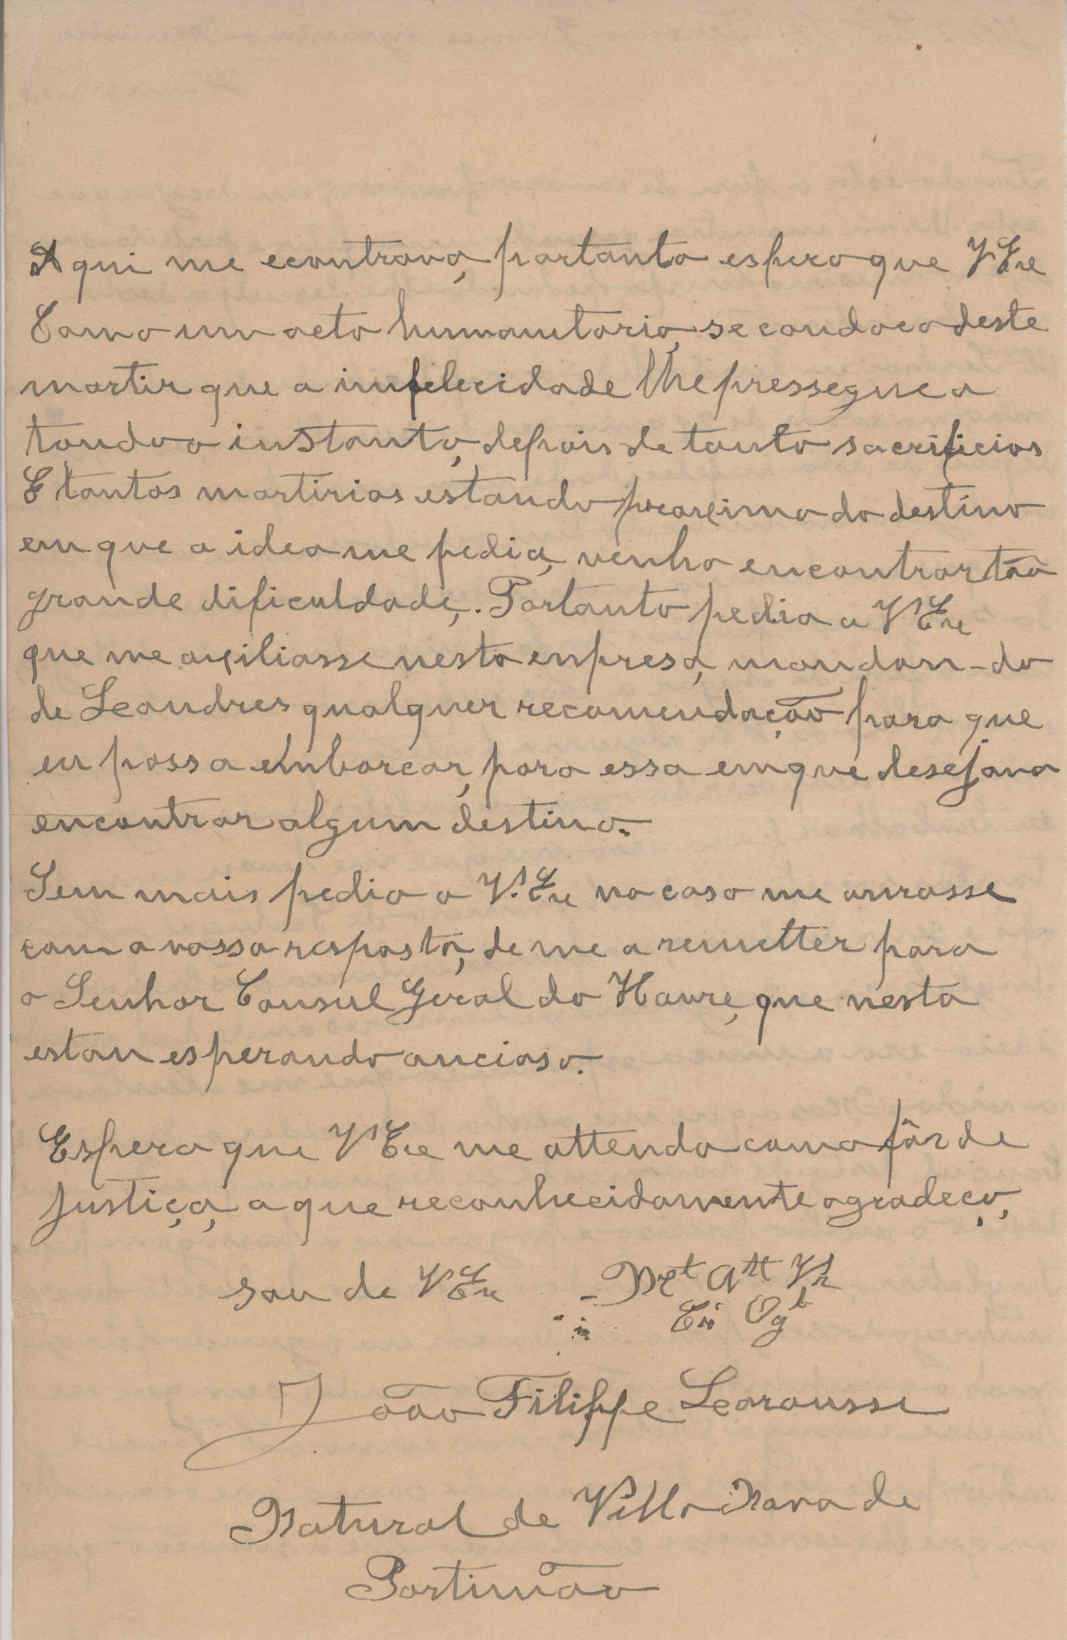 Aqui me econtrava, portanto espero que V Exe
Como um acto humanitario, se condoca deste
martir que a imfelecidade lhe pressegue a
tondo o instanto, depois de tanto sacrificios
E tantos martirios estando proximo do destino
em que a idea me pedia, venho encontrar tão
grande dificuldade,. Portanto pedia a V Exe
que me auxiliasse nesta enpresa, mandan-do
de Leondres qualquer recomendação para que
eu possa embarcar, para essa emque desejava
encontrar algum destino.
Sem mais pedia a V. Exe no caso me onrasse
com a vossa resposta, de me a remetter para
o Senhor Consul Geral do Havre, que nesta
estou esperando ancioso.
Espero que V Exe me attenda como fôr de
justiça, a que reconhecidamente agradeço,
sou de V Exe
João Filippe Learousse
Natural de Villa Nova de
Portimão